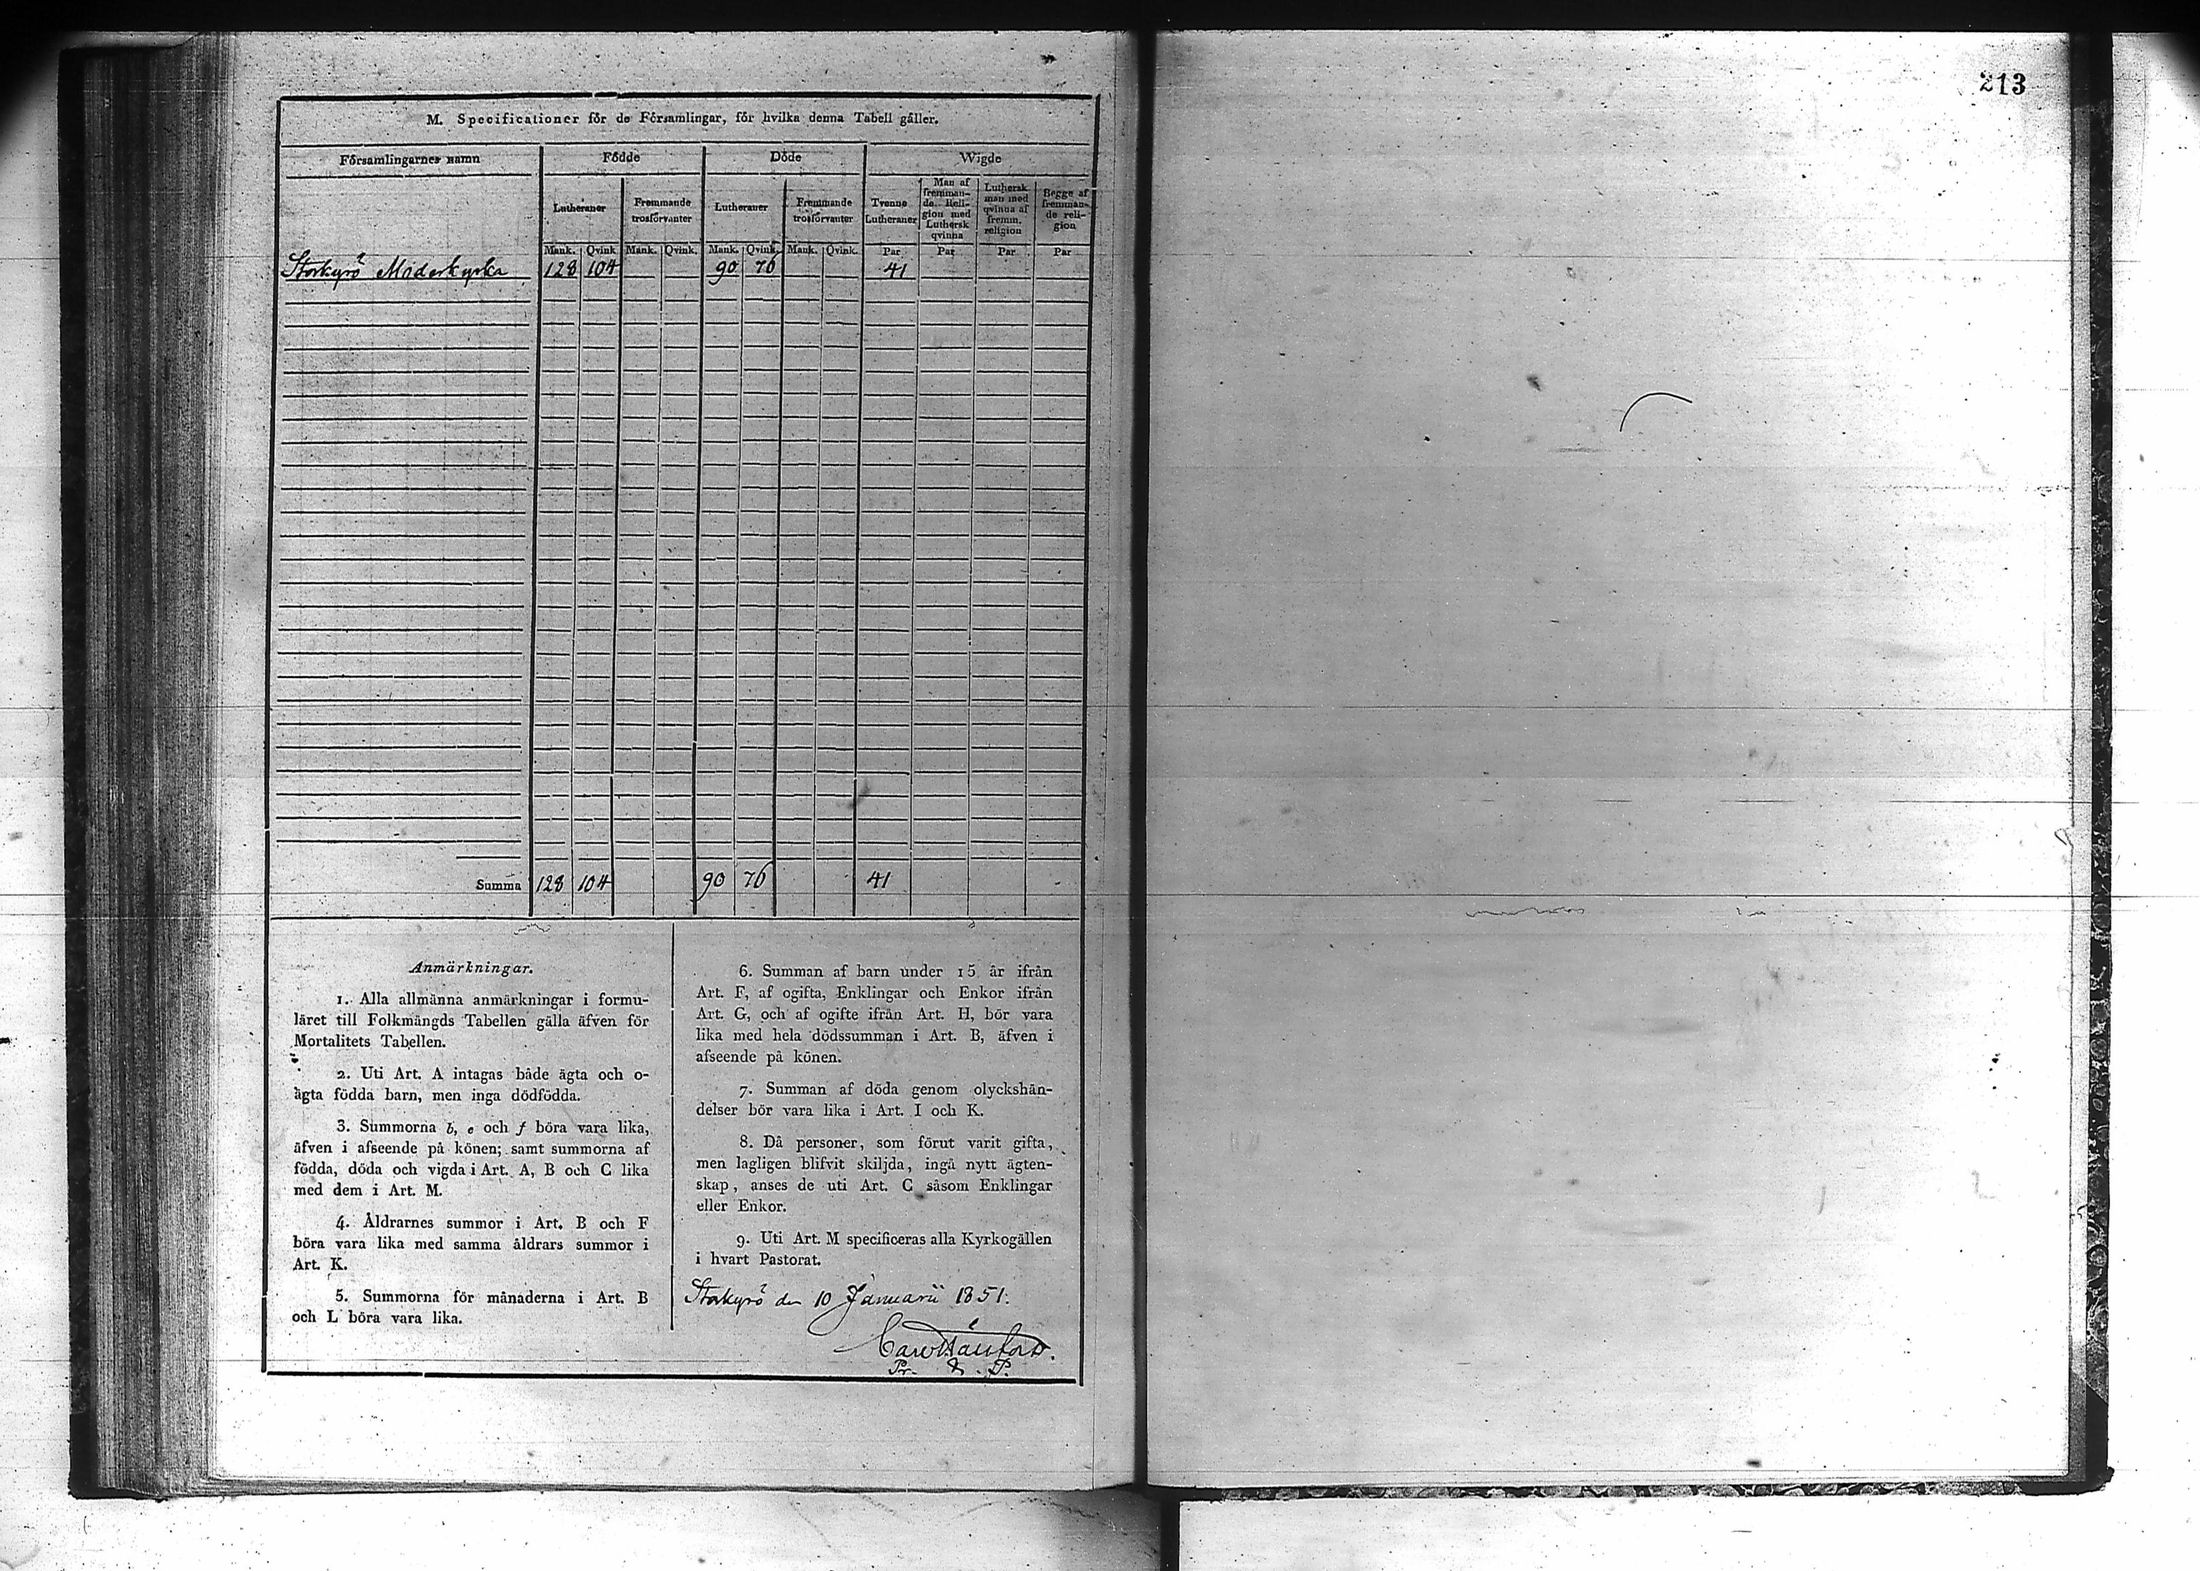 213
M. Specificationer för de Församlingar, för hvilka denna Tabell gäller.
Församlingarnes namn Födde Döde Wigde
Lutheraner Fremmande trosförvanter Lutheraner Fremmande trosförvanter Tvenne Lutheraner Man af fremmande Religion med Luthersk qvinna Luthersk man med qvinna af fremm. religion Begge af fremmande religion
Mank. Qvink. Mank. Qvink. Mank. Qvink. Mank. Qvink. Par Par Par Par
Storkyrö Moderkyrka 128 104 90 76 41
Summa 128 104 90 76 41
Anmärkningar.
1. Alla allmänna anmärkningar i formu-
läret till Folkmängds Tabellen gälla äfven för
Mortalitets Tabellen.
2. Uti Art. A intagas både ägta och o-
ägta födda barn, men inga dödfödda.
3. Summorna b, e och f böra vara lika,
äfven i afseende på könen; samt summorna af
födda, döda och vigda i Art. A, B och C lika
med dem i Art. M.
4. Åldrarnes summor i Art. B och F
böra vara lika med samma åldrars summor i
Art. K.
5. Summorna för månaderna i Art. B
och L böra vara lika.
6. Summan af barn under 15 år ifrån
Art. F, af ogifta, Enklingar och Enkor ifrån
Art. G, och af ogifte ifrån Art. H, bör vara
lika med hela dödssumman i Art. B, äfven i
afseende på könen.
7. Summan af döda genom olyckshän-
delser bör vara lika i Art. I och K.
8. Då personer, som förut varit gifta,
men lagligen blifvit skiljda, ingå nytt ägten-
skap, anses de uti Art. C såsom Enklingar
eller Enkor.
9. Uti Art. M specificeras alla Kyrkogällen
i hvart Pastorat.
Storkyrö den 10 Januarii 1851.
Pr. & P.